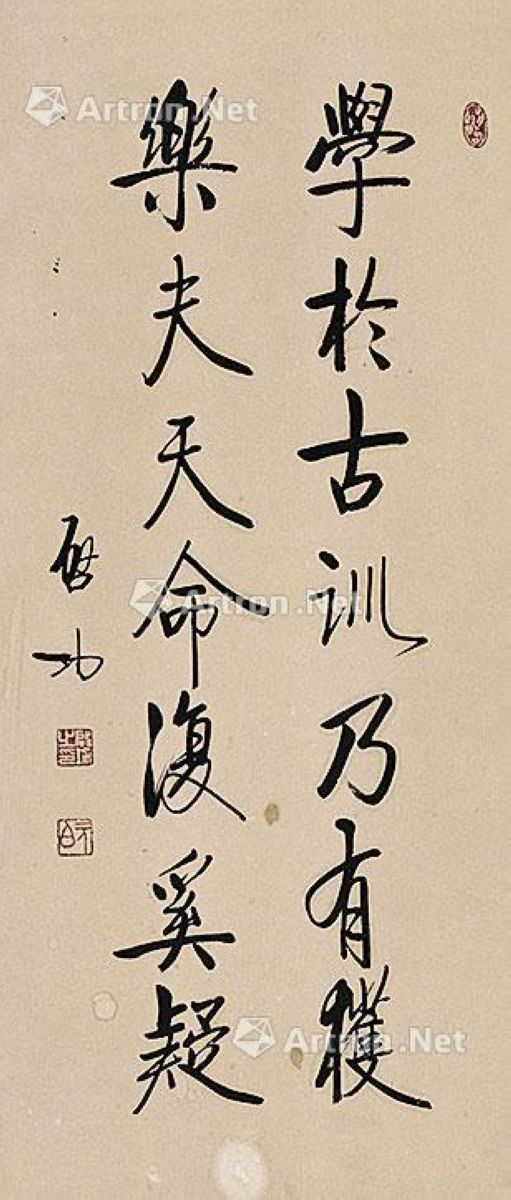 學於古訓乃有獲
樂夫天命復奚疑
啟功
Artron.Net
Artron.Net
Artron.Net